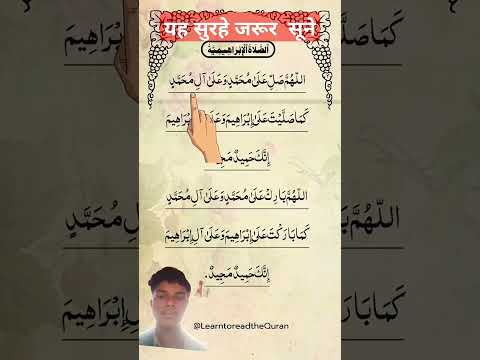 यह सुरहे जरूर सूने
اَلصَّلَاةُ الْإِبْرَاهِيمِيَّةُ
اللّٰهُمَّ صَلِّ عَلَىٰ مُحَمَّدٍ وَعَلَىٰ آلِ مُحَمَّدٍ
كَمَا صَلَّيْتَ عَلَىٰ إِبْرَاهِيمَ وَعَلَىٰ
إِنَّكَ حَمِيدٌ
اللّٰهُمَّ بَارِكْ عَلَىٰ مُحَمَّدٍ وَعَلَىٰ آلِ مُحَمَّدٍ
كَمَا بَارَكْتَ عَلَىٰ إِبْرَاهِيمَ وَعَلَىٰ آلِ إِبْرَاهِيمَ
إِنَّكَ حَمِيدٌ مَجِيدٌ.
@LearntoreadtheQuran